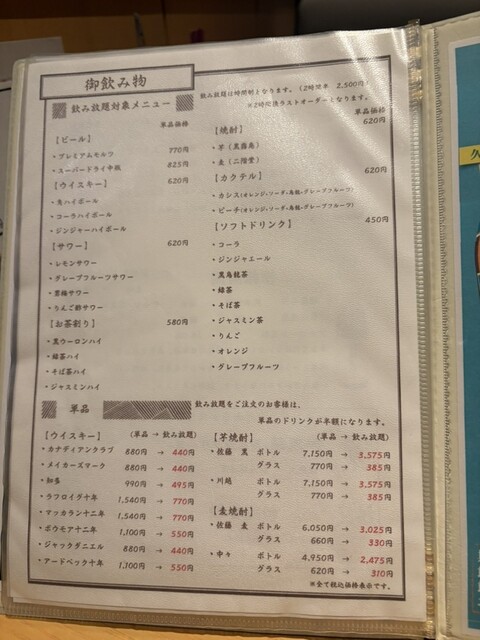 御飲み物
飲み放題は時間制となります。(2時間半 2,500円)
※2時間後ラストオーダーとなります。
飲み放題対象メニュー
単品価格
【ビール】
・プレミアムモルツ 770円
・スーパードライ中瓶 825円
【ウイスキー】 620円
・角ハイボール
・コーラハイボール
・ジンジャーハイボール
【サワー】 620円
・レモンサワー
・グレープフルーツサワー
・里梅サワー
・りんご酢サワー
【お茶割り】 580円
・黒ウーロンハイ
・緑茶ハイ
・そば茶ハイ
・ジャスミンハイ
単品価格
【焼酎】 620円
・芋(黒霧島)
・麦(二階堂)
【カクテル】 620円
・カシス(オレンジ・ソーダ・烏龍・グレープフルーツ)
・ピーチ(オレンジ・ソーダ・烏龍・グレープフルーツ)
【ソフトドリンク】 450円
・コーラ
・ジンジャエール
・黒烏龍茶
・緑茶
・そば茶
・ジャスミン茶
・りんご
・オレンジ
・グレープフルーツ
単品
飲み放題をご注文のお客様は、
単品のドリンクが半額になります。
【ウイスキー】 (単品 → 飲み放題)
・カナディアンクラブ 880円 → 440円
・メイカーズマーク 880円 → 440円
・知多 990円 → 495円
・ラフロイグ十年 1,540円 → 770円
・マッカラン十二年 1,540円 → 770円
・ボウモア十二年 1,100円 → 550円
・ジャックダニエル 880円 → 440円
・アードベック十年 1,100円 → 550円
【芋焼酎】 (単品 → 飲み放題)
・佐藤 黒 ボトル 7,150円 → 3,575円
グラス 770円 → 385円
・川越 ボトル 7,150円 → 3,575円
グラス 770円 → 385円
【麦焼酎】
・佐藤 麦 ボトル 6,050円 → 3,025円
グラス 660円 → 330円
・中々 ボトル 4,950円 → 2,475円
グラス 620円 → 310円
※全て税込価格表示です。